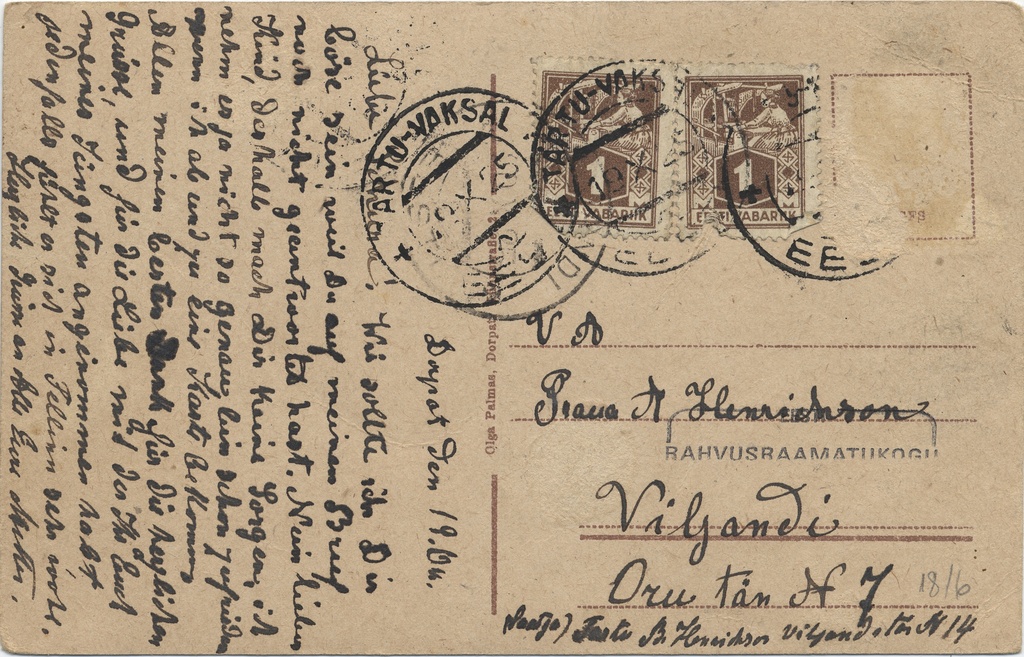 Dorpat den 19. Okt.
Liebe
Wie sollte ich Dir
böse sein weil Du auf meinen Brief
noch nicht geantwortet hast. Nein liebes
Kind, deshalb mach Dir keine Sorgen, ich
nehm es ja nicht so genau bin schon zufrieden
wenn ich ab und zu eine Karte bekomme
Allen meinen besten Dank für die herzlichen
Grüsse, und für die Liebe mit der Ihr Euch
meines Jüngsten angenommen habt
jedenfalls fühlt er sich in Fellin sehr wohl.
Herzliche Grüsse an Alle Eure
TARTU-VAKSAL
19 X 25
EESTI
TARTU-VAKSAL
19 X
EE
EE
1
EESTI VABARIIK
1
EESTI VABARIIK
Olga Palmas, Dorpat
V A
Praua A Henrichson
RAHVUSRAAMATUKOGU
Viljandi
Oru tän N 7
18/6
(Saatja) Tartu Henrichson Viljandi tän N 14